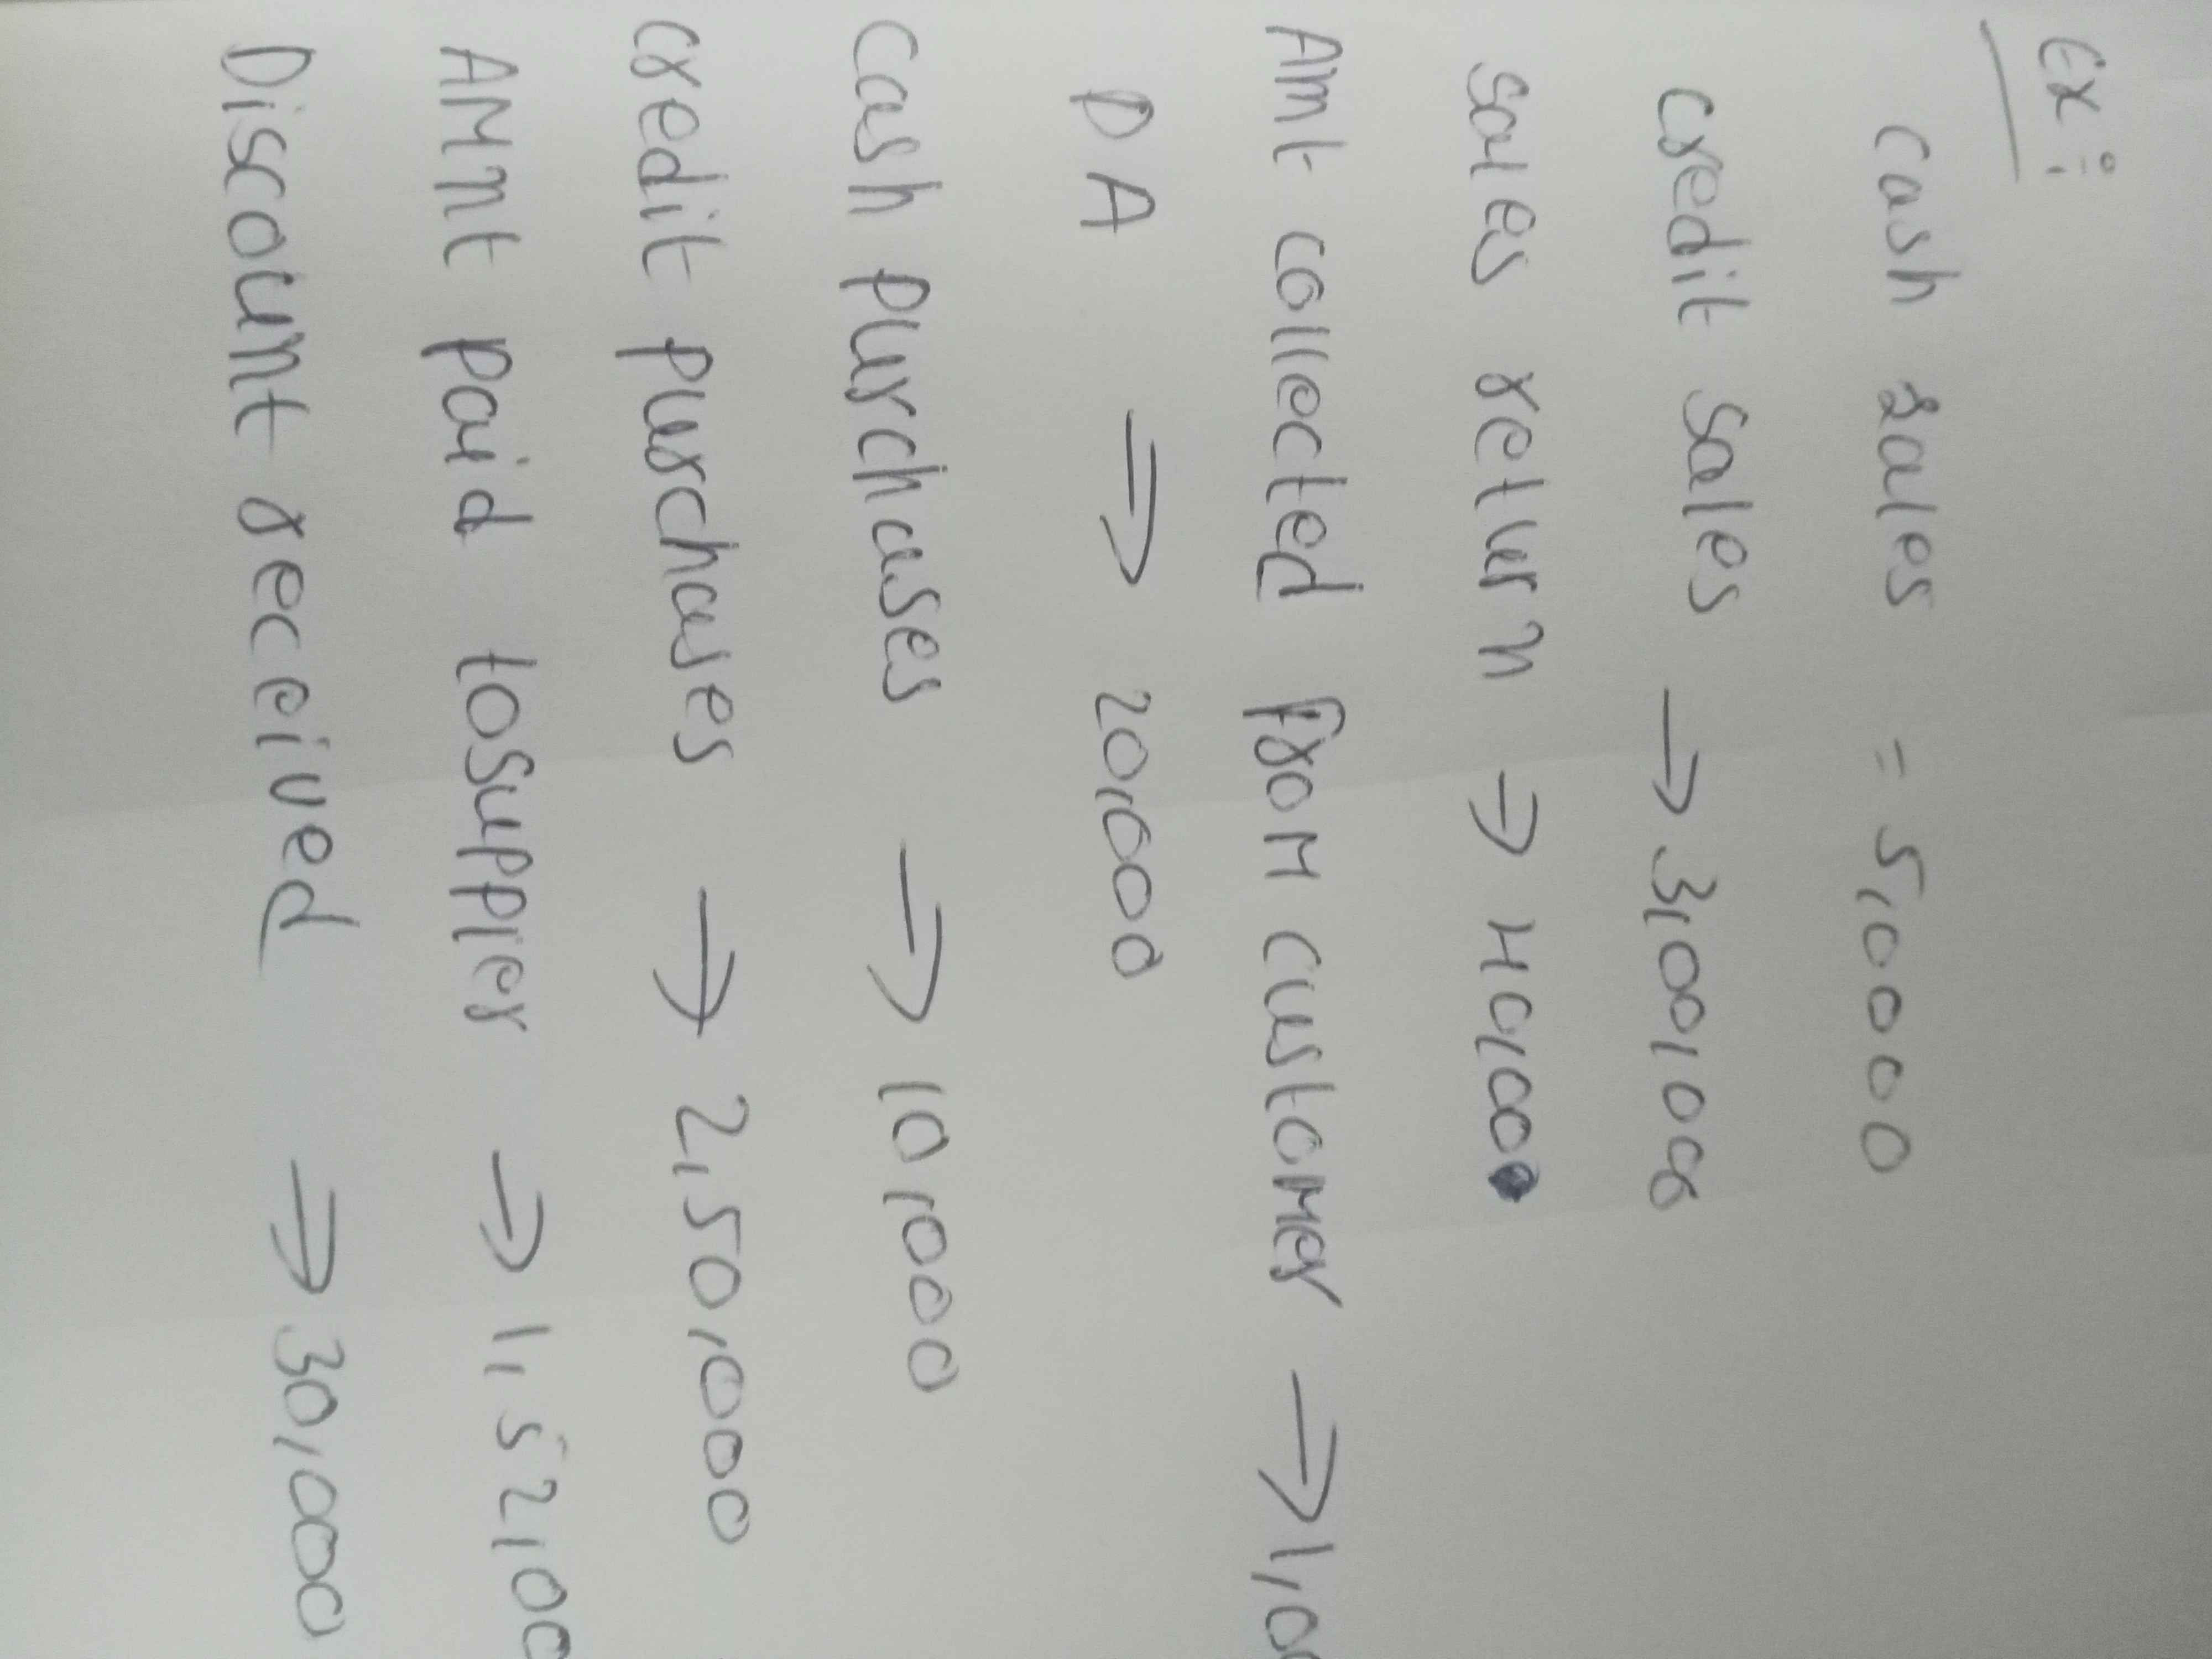 Ex:
cash sales = 5,0000
credit sales → 3,00,000
sales return ⇒ 40,000
Amt collected from customer ⇒ 1,00
D A ⇒ 20,000
cash purchases ⇒ 10,000
credit purchases → 2,50,000
AMnt paid tosupplier ⇒ 1,52,00
Discount received ⇒ 30,000